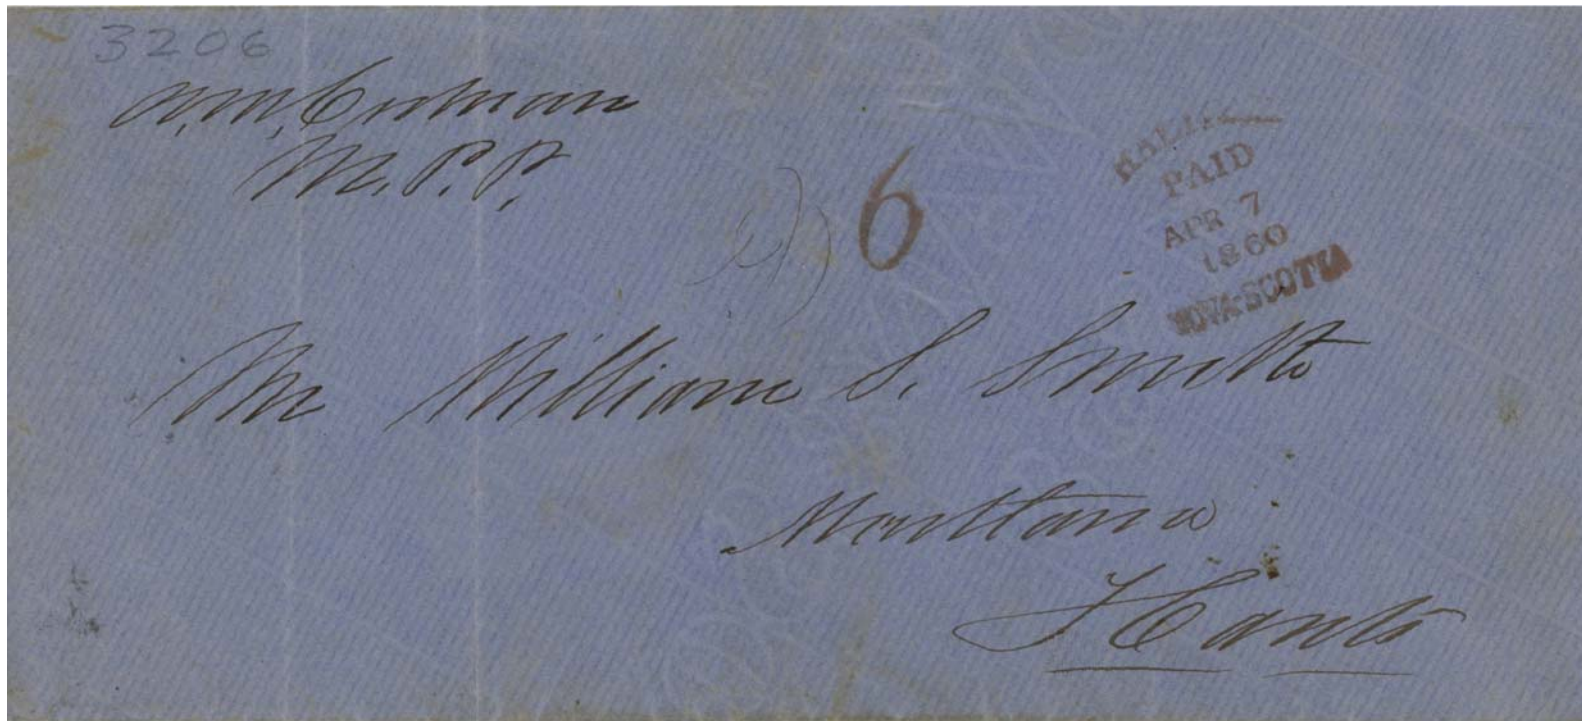 3206
A, M, Cochran
M. P. P.
6
HALIFAX
PAID
APR 7
1860
NOVA-SCOTIA
Mr William S. Smith
Maitland
Hants